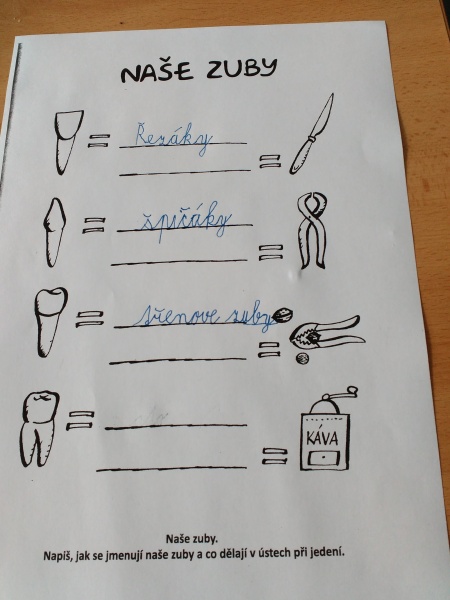 NAŠE ZUBY
Řezáky
špičáky
třenove zuby
KÁVA
Naše zuby.
Napiš, jak se jmenují naše zuby a co dělají v ústech při jedení.